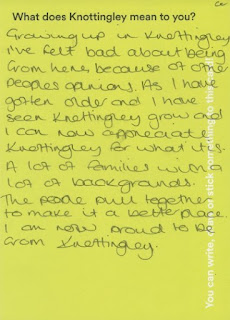 What does Knottingley mean to you?
Growing up in Knottingley
I've felt bad about being
from here, because of other
peoples opinions. As I have
gotten older and I have
seen Knottingley grow and
I can now appreciate
Knottingley for what it is.
A lot of families with a
lot of backgrounds.
The people pull together
to make it a better place.
I am now proud to be
from Knottingley.
You can write, draw or stick something to this